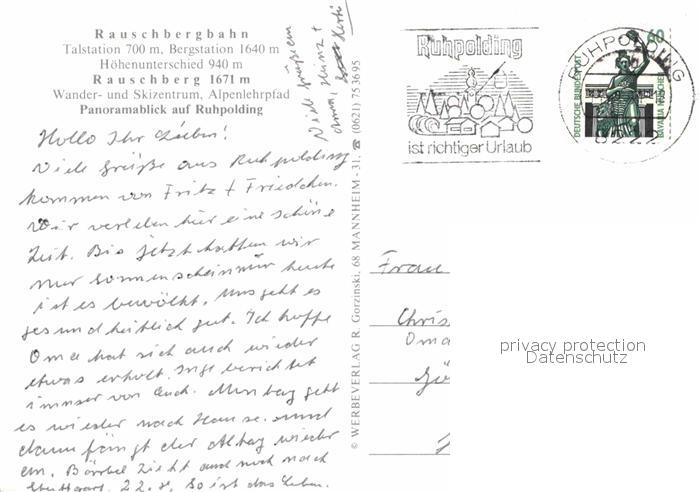 Rauschbergbahn
Talstation 700 m, Bergstation 1640 m
Höhenunterschied 940 m
Rauschberg 1671 m
Wander- und Skizentrum, Alpenlehrpfad
Panoramablick auf Ruhpolding
Hallo Ihr Lieben!
Viele Grüße aus Ruhpolding
kommen von Fritz + Friedchen.
Wir verleben hier eine schöne
Zeit. Bis jetzt hatten wir
nur Sonnenschein nur heute
ist es bewölkt. Uns geht es
gesundheitlich gut. Ich hoffe
Oma hat sich auch wieder
etwas erholt. Inge berichtet
immer von Euch. Montag geht
es wieder nach Hause und
dann fängt der Alltag wieder
an. Bärbel zieht auch noch nach
Stuttgart. So ist das Leben.
Viele Grüße an
Anna, Heinz +
© WERBEVERLAG R. Gorzinski, 68 MANNHEIM - 31, ☎ (0621) 753695
Ruhpolding
ist richtiger Urlaub
RUHPOLDING
8222
60
DEUTSCHE BUNDESPOST
BAVARIA MÜNCHEN
Frau
Chris
Oma
privacy protection
Datenschutz